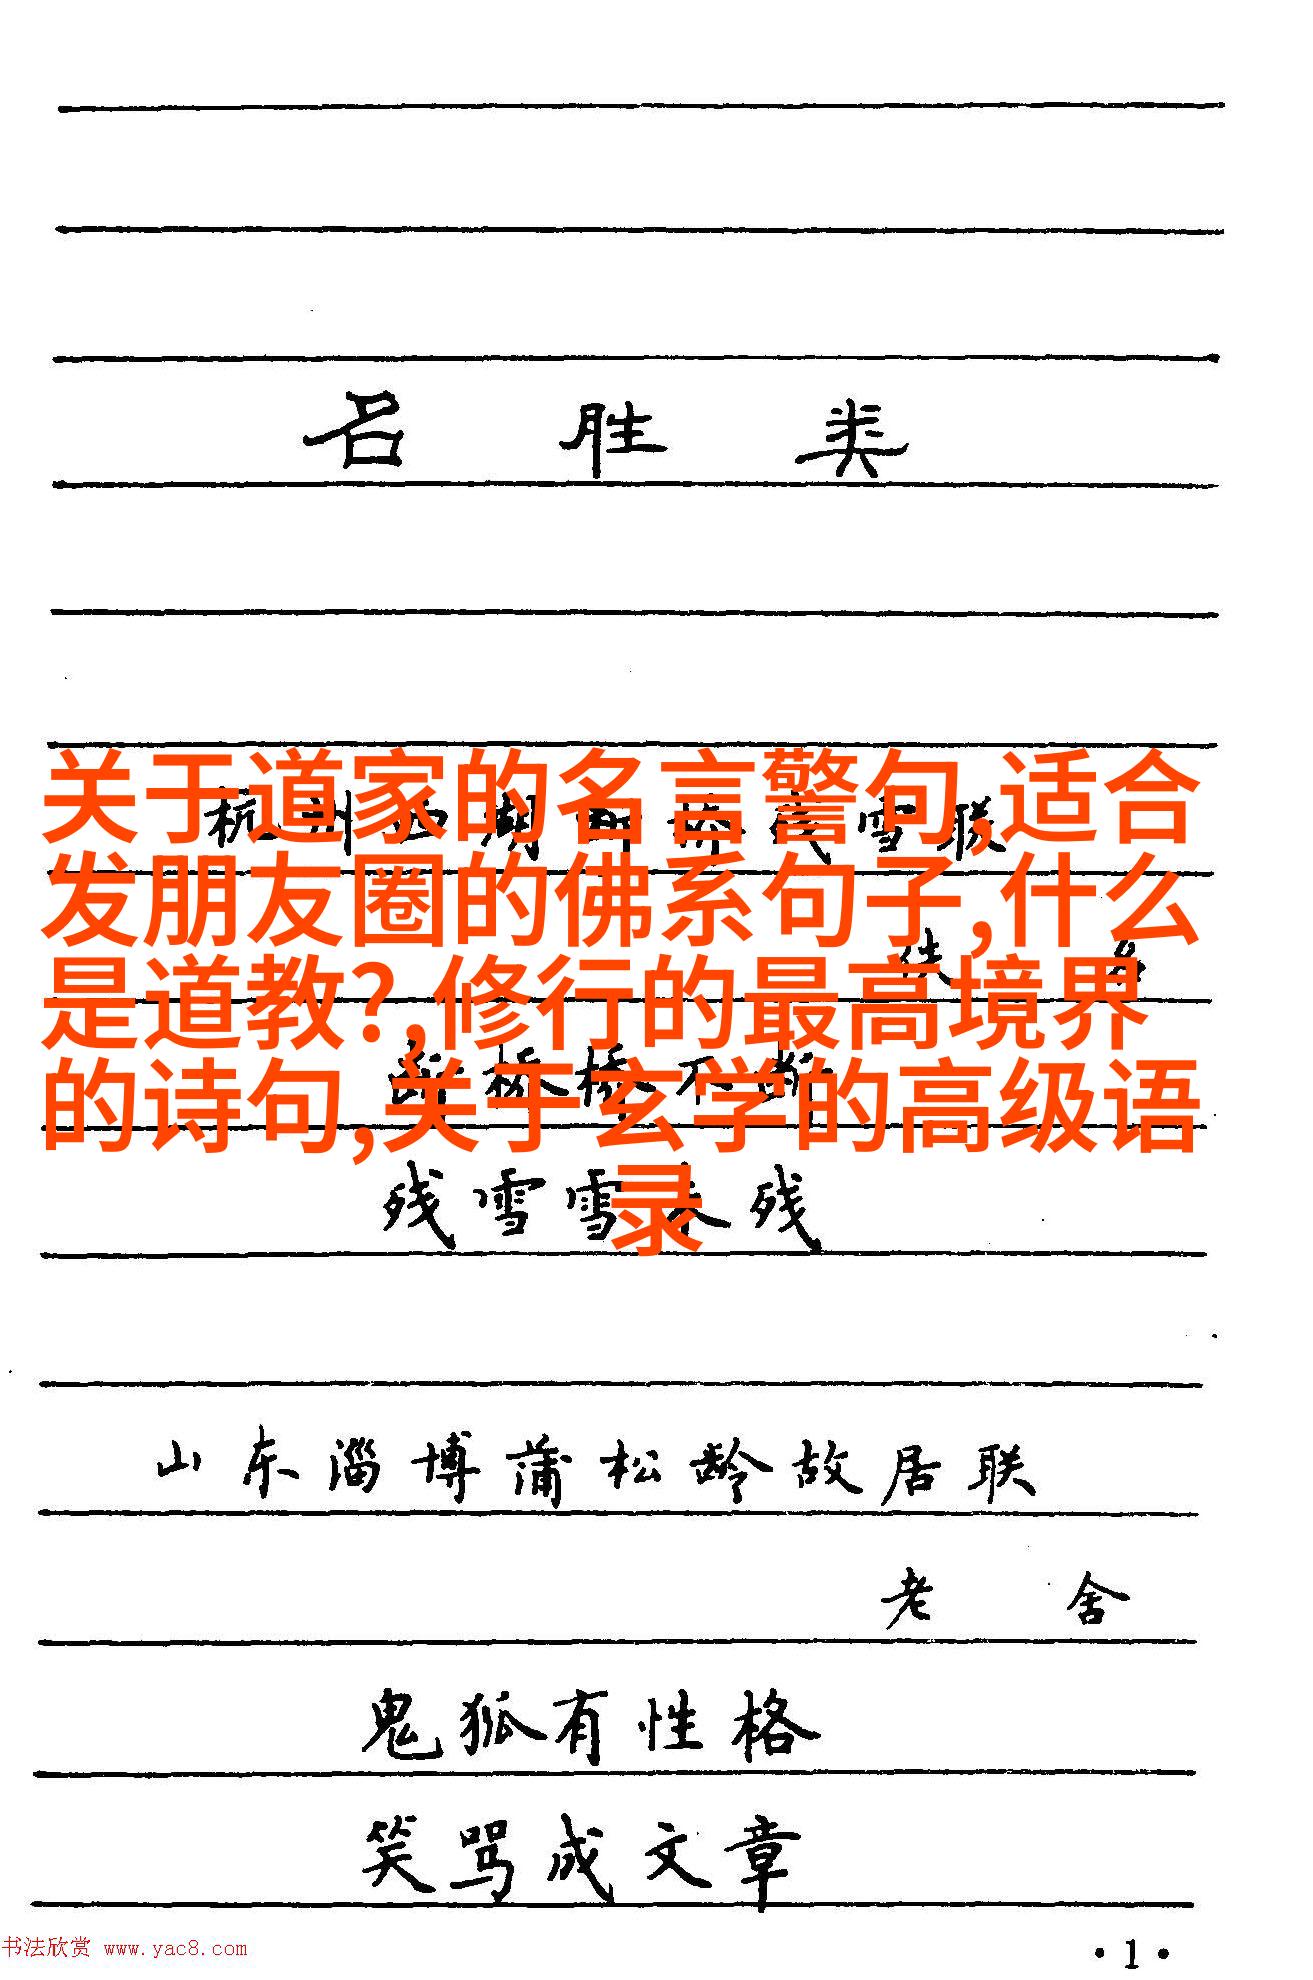 名胜类
关于道家的名言警句,适合
杭州西湖断桥残雪联
发朋友圈的佛系句子,什么
是道教?,修行的最高境界
断桥桥不断
的诗句,关于玄学的高级语
残雪雪未残
录
山东淄博蒲松龄故居联
老舍
鬼狐有性格
笑骂成文章
书法欣赏 www.yac8.com
·1·